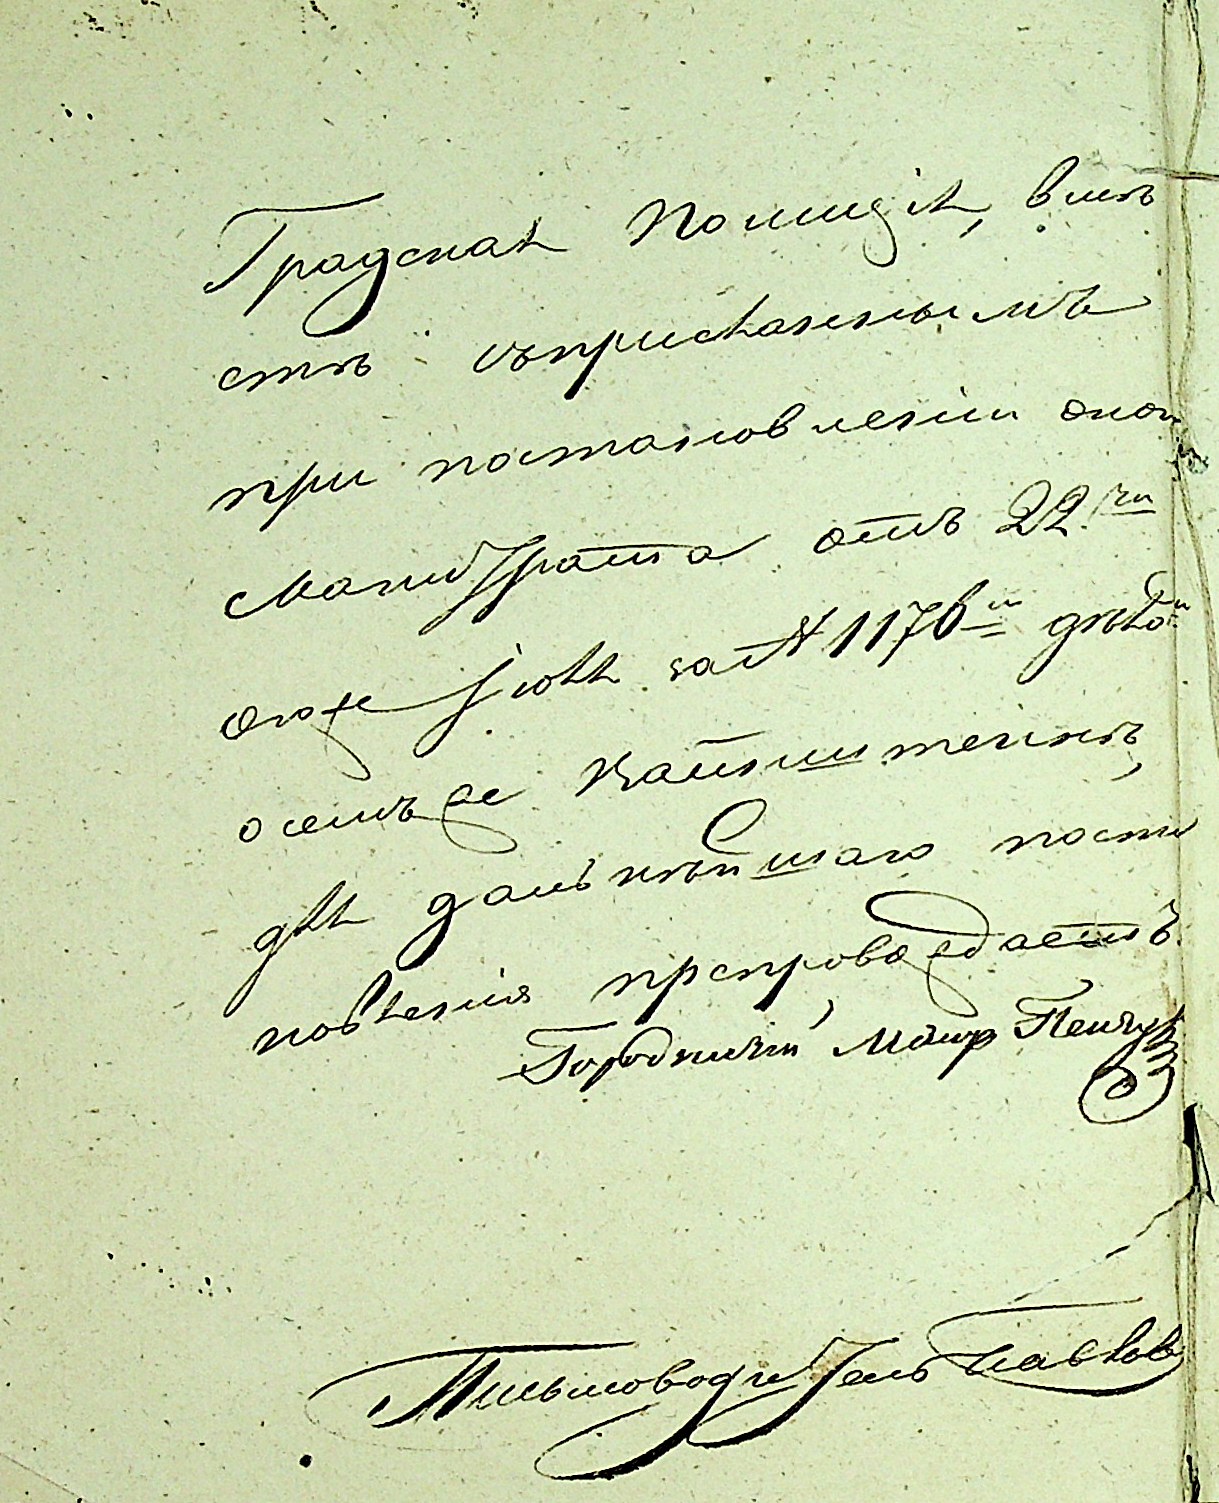 Градская Полиція, вмѣ
стѣ съприсланнымъ
при постановленіи оного
Магистрата отъ 22 чи
сюля за № 1176 м дѣло
осемъ же Капнштейнѣ,
для дальнѣйшаго поста
новленія препровождаетъ.
Городничій Маіор
Письмоводитель Павлов